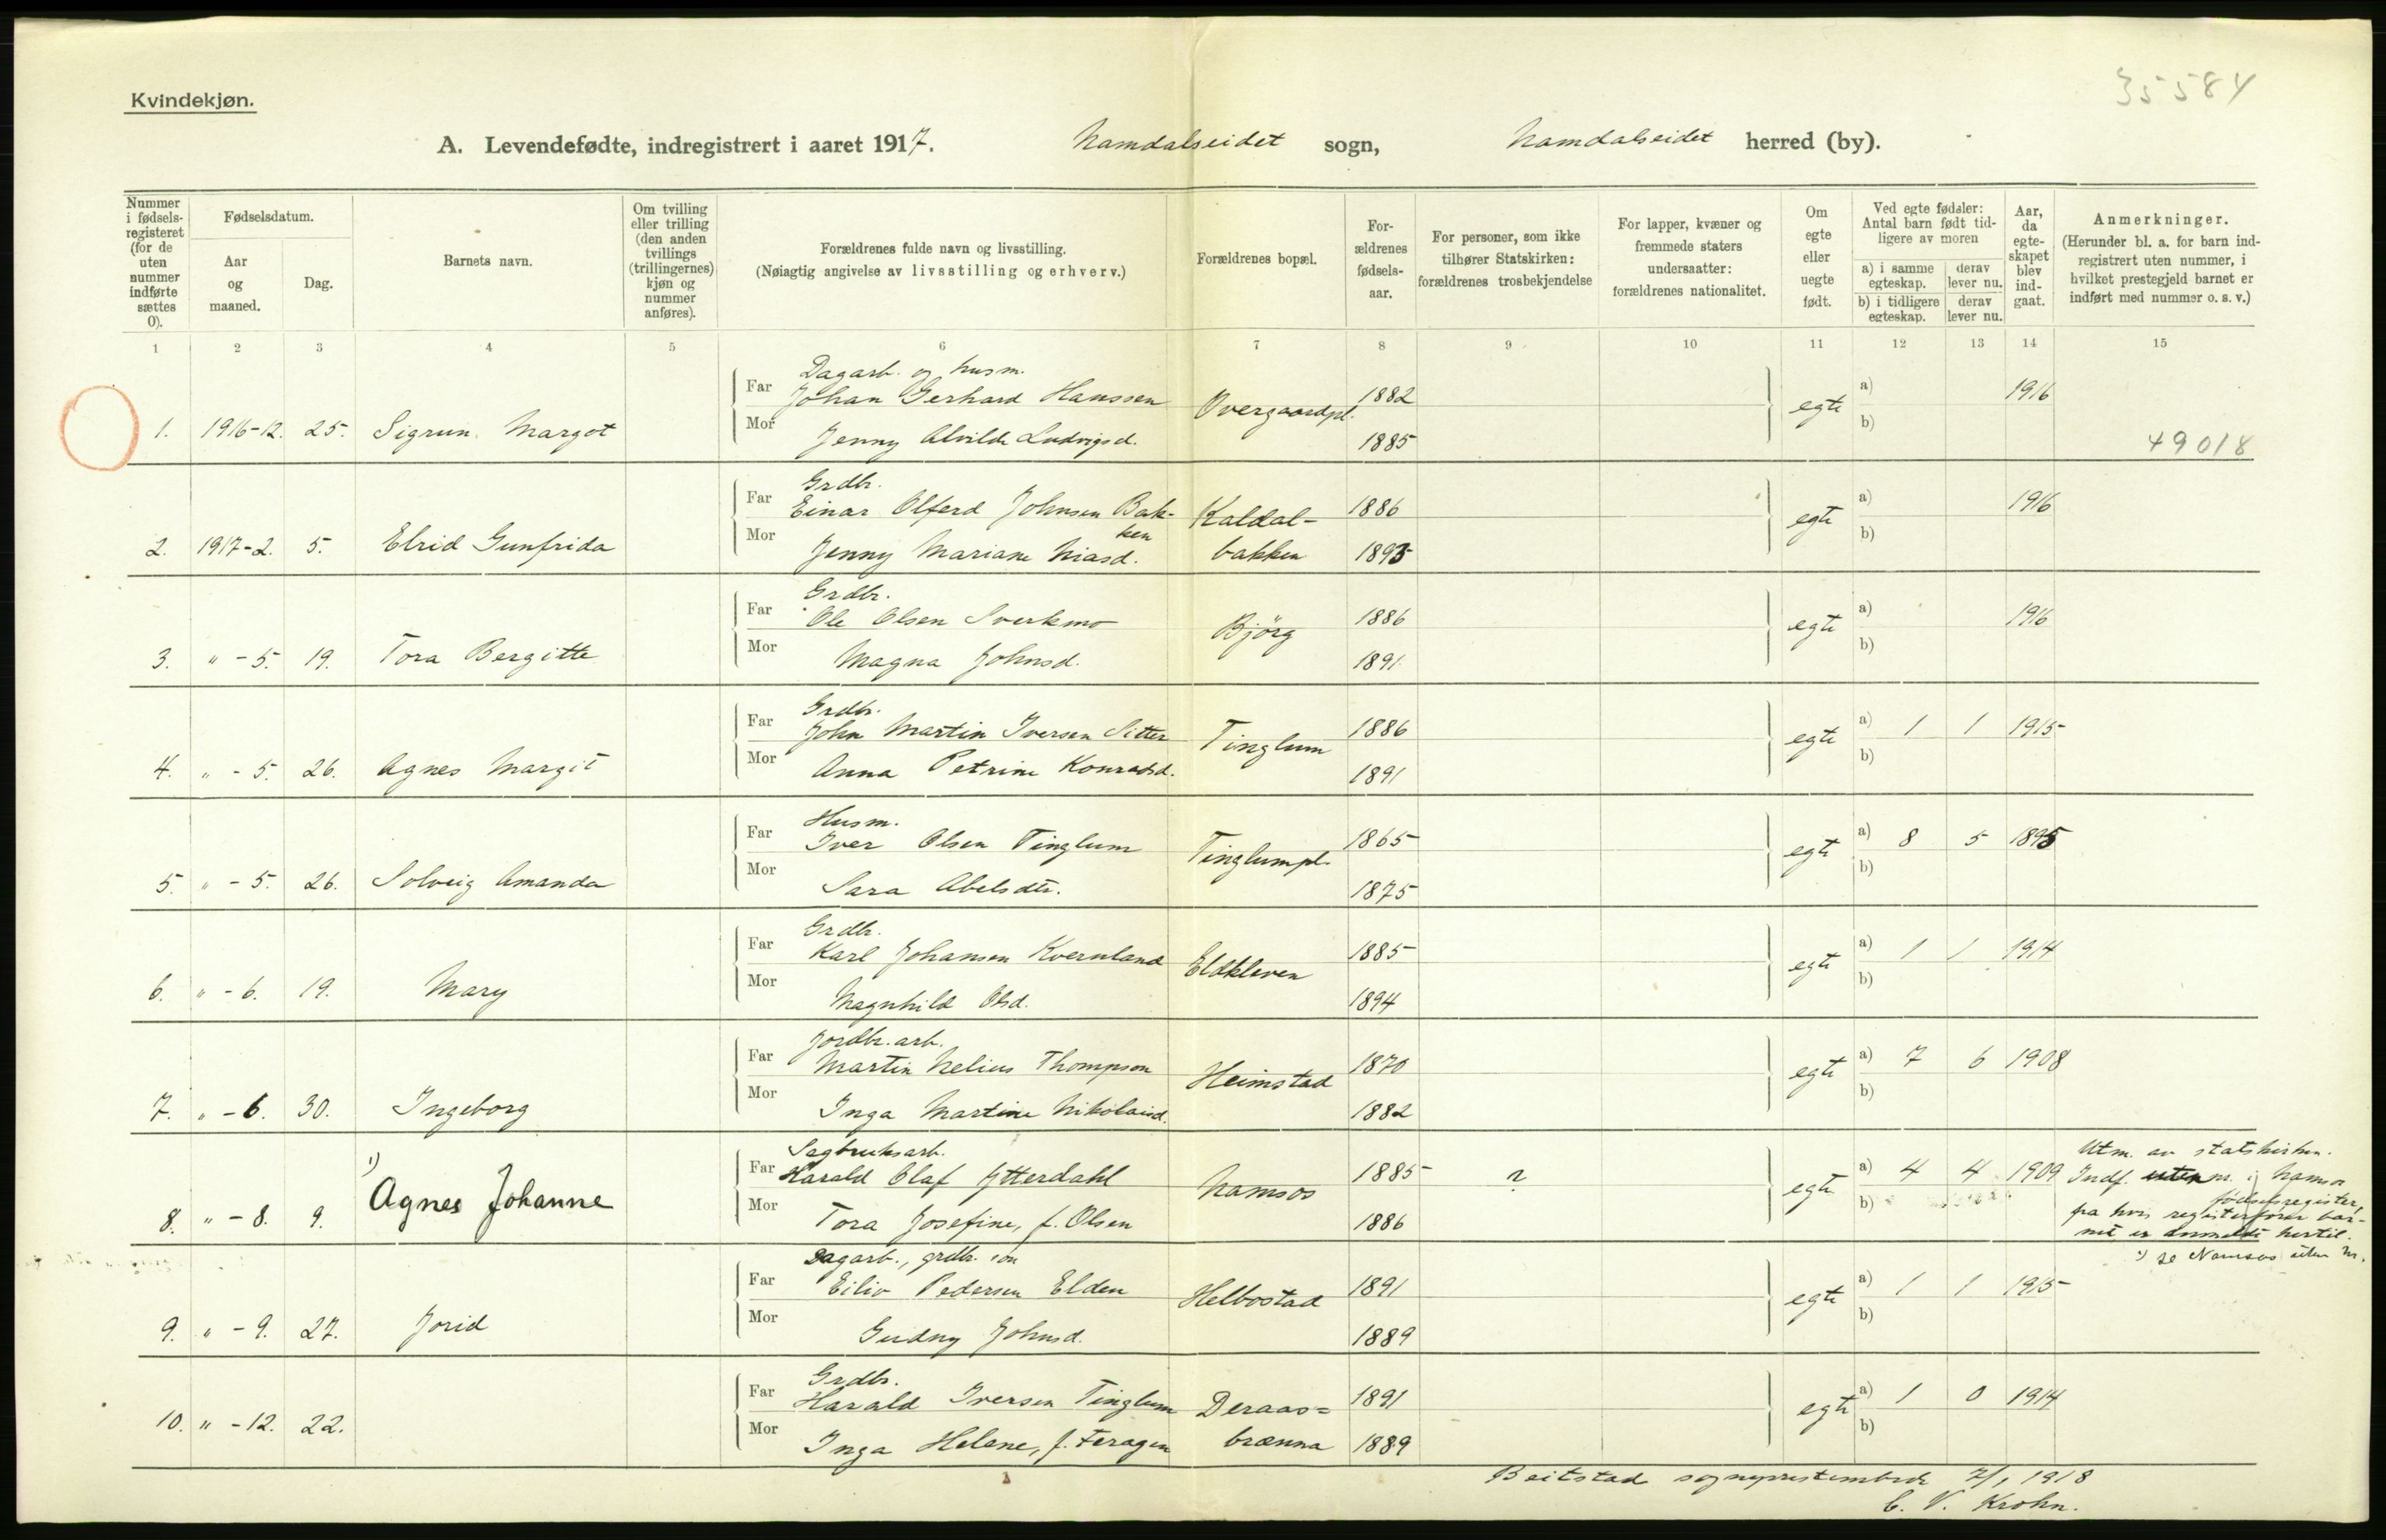 35584
Kvindekjøn.
A. Levendefødte, indregistrert i aaret 1917. Namdalseidet sogn, Namdalseidet herred (by).
Nummer i fødsels-registeret (for de uten nummer indførte sættes 0).
Fødselsdatum.
Aar og maaned.
Dag.
Barnets navn.
Om tvilling eller trilling (den anden tvillings (trillingernes) kjøn og nummer anføres).
Forældrenes fulde navn og livsstilling.
(Nøiagtig angivelse av livsstilling og erhverv.)
Forældrenes bopæl.
For-ældrenes fødsels-aar.
For personer, som ikke tilhører Statskirken: forældrenes trosbekjendelse
For lapper, kvæner og fremmede staters undersaatter: forældrenes nationalitet.
Om egte eller uegte født.
Ved egte fødsler: Antal barn født tid-ligere av moren
a) i samme egteskap.
derav lever nu.
b) i tidligere egteskap.
derav lever nu.
Aar, da egte-skapet blev ind-gaat.
Anmerkninger.
(Herunder bl. a. for barn ind-registrert uten nummer, i hvilket prestegjeld barnet er indført med nummer o. s. v.)
1 2 3 4 5 6 7 8 9 10 11 12 13 14 15
Dagarb. og husm.
Far Johan Gerhard Hanssen Overgaardpl. 1882 egte a) 1916
1. 1916-12. 25. Sigrun Margot
Mor Jenny Alvilde Ludvigsd. 1885 b) 49018
Grdbr.
Far Einar Olferd Johnsen Bak-ken Kaldal- 1886 egte a) 1916
2. 1917-2. 5. Elrid Gunfrida
Mor Jenny Mariane Niasd. bakken 1895 b)
Grdbr.
Far Ole Olsen Sverkmo Bjørg 1886 egte a) 1916
3. " - 5. 19. Tora Bergitte
Mor Magna Johnsd. 1891 b)
Grdbr.
Far John Martin Iversen Sitter Tinglum 1886 egte a) 1 1 1915
4. " - 5. 26. Agnes Margit
Mor Anna Petrine Konradsd. 1891 b)
Husm.
Far Iver Olsen Tinglum Tinglumpl. 1865 egte a) 8 5 1895
5. " - 5. 26. Solveig Amanda
Mor Sara Abelsdtr. 1875 b)
Grdbr.
Far Karl Johansen Kvernland Eldkleven 1885 egte a) 1 1 1914
6. " - 6. 19. Mary
Mor Magnhild Olsd. 1894 b)
Jordbr. arb.
Far Martin Nelius Thompson Heimstad 1870 egte a) 7 6 1908
7. " - 6. 30. Ingeborg
Mor Inga Martine Nikolaisd. 1882 b)
Sagbruksarb.
Far Harald Olaf Ytterdahl Namsos 1885 ? egte a) 4 4 1909
8. " - 8. 9. 1) Agnes Johanne
Mor Tora Josefine, f. Olsen 1886 b)
Utm. av statskirken.
Indf. uten nr. i Namsos
fødselsregister,
fra hvis registerfører bar-
net er anmeldt hertil.
1) se Namsos uten nr.
Dagarb., grdbr. søn
Far Eiliv Pedersen Elden Helbostad 1891 egte a) 1 1 1915
9. " - 9. 27. Jorid
Mor Gudny Johnsd. 1889 b)
Grdbr.
Far Harald Iversen Tinglum Deraas= 1891 egte a) 1 0 1914
10. " - 12. 22.
Mor Inga Helene, f. Feragen brænna 1889 b)
Beitstad sogneprestembede 2/1 1918
C. V. Krohn.